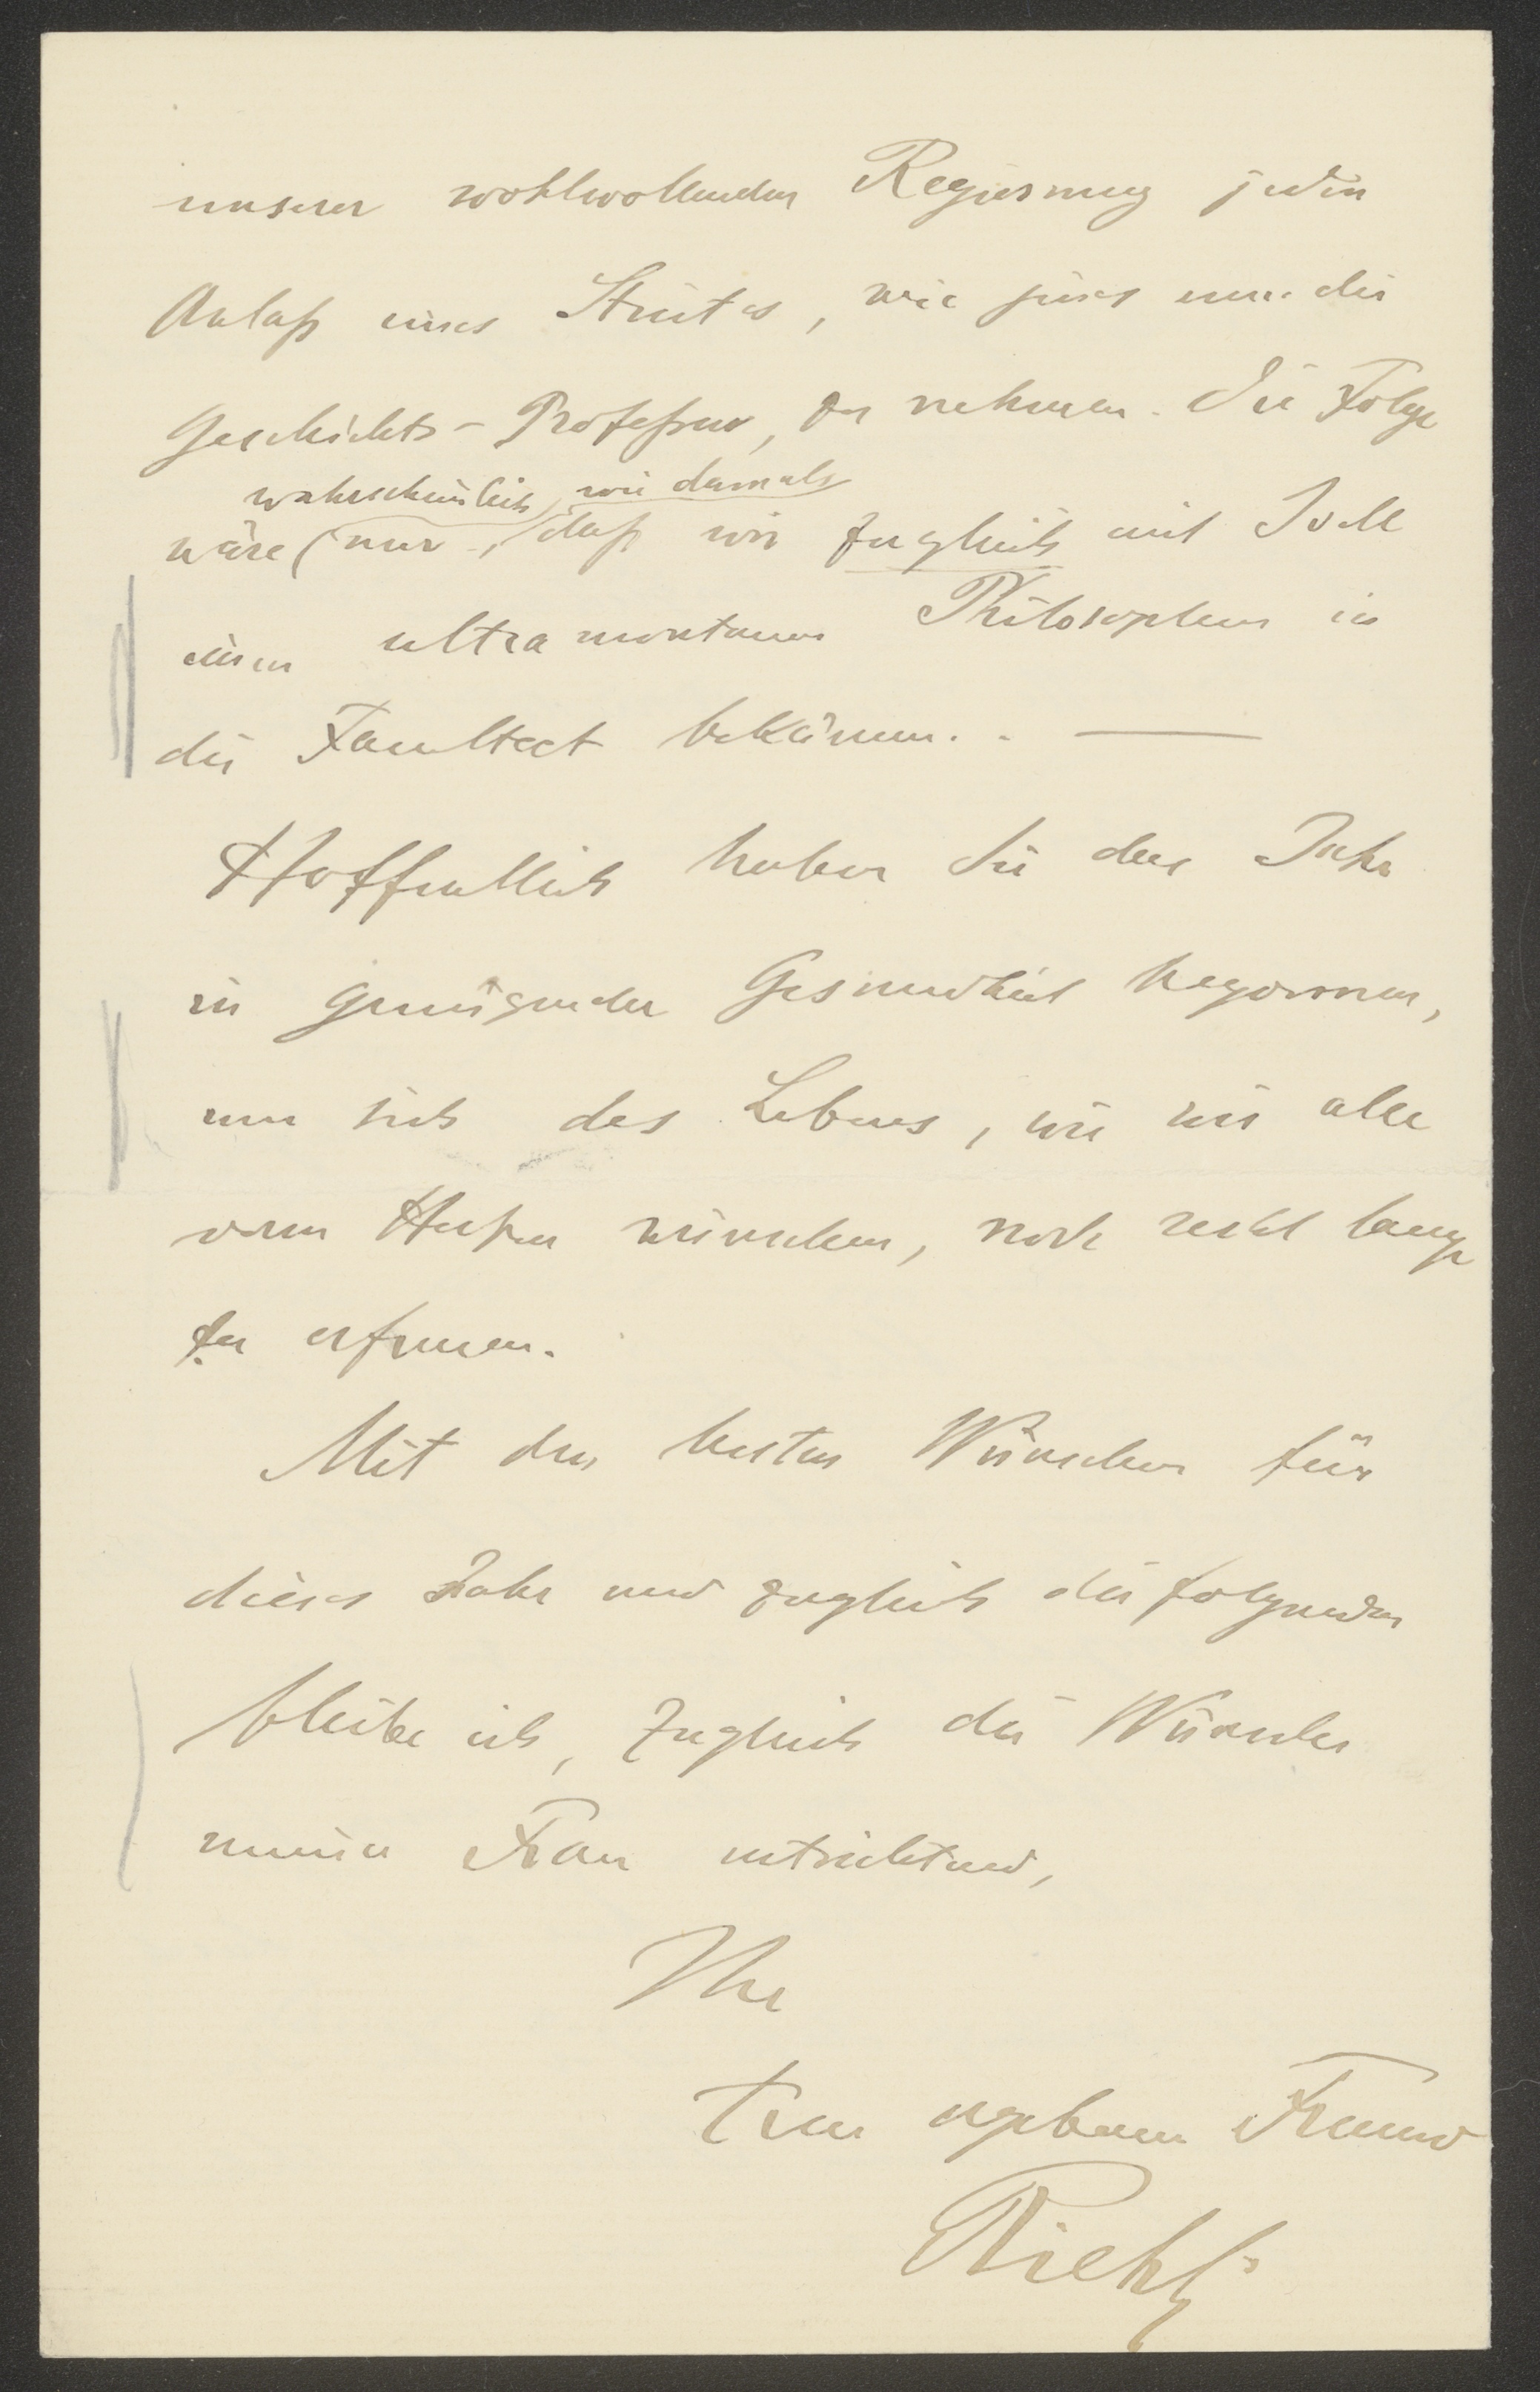 unserer wohlwollenden Regierung jeden
Anlaß eines Streites, wie jenes um die
Geschichts-Professur, zu nehmen. Die Folge
wahrscheinlich, wie damals
wäre (nur, daß wir zugleich mit Jodl
einen ultramontanen Philosophen in
die Facultaet bekämen. . —
Hoffentlich haben Sie das Jahr
in genügender Gesundheit begonnen,
um sich des Lebens, wie wir alle
vom Herzen wünschen, noch recht lange
zu erfreuen.
Mit den besten Wünschen für
dieses Jahr und zugleich die folgenden
bleibe ich, zugleich die Wünsche
meiner Frau entrichtend,
Ihr
treu ergebener Freund
Riehl